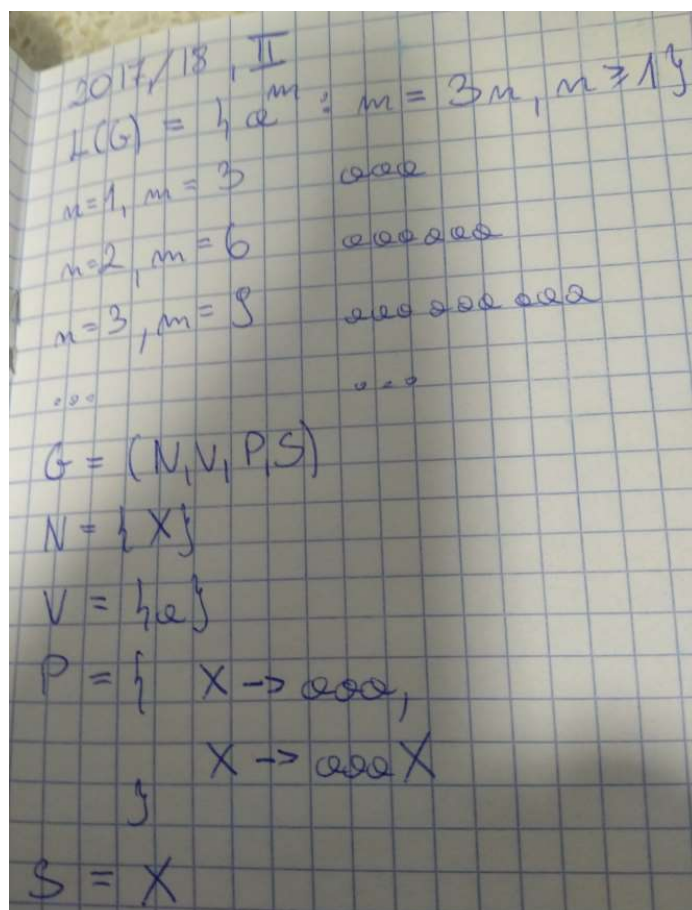 2017/18, II
L(G) = { a^m : m = 3n, n ≥ 1}
n=1, m = 3 aaa
n=2, m = 6 aaaaaa
n=3, m = 9 aaa aaa aaa
... ...
G = (N, V, P, S)
N = { X}
V = {a}
P = { X -> aaa,
X -> aaaX
}
S = X